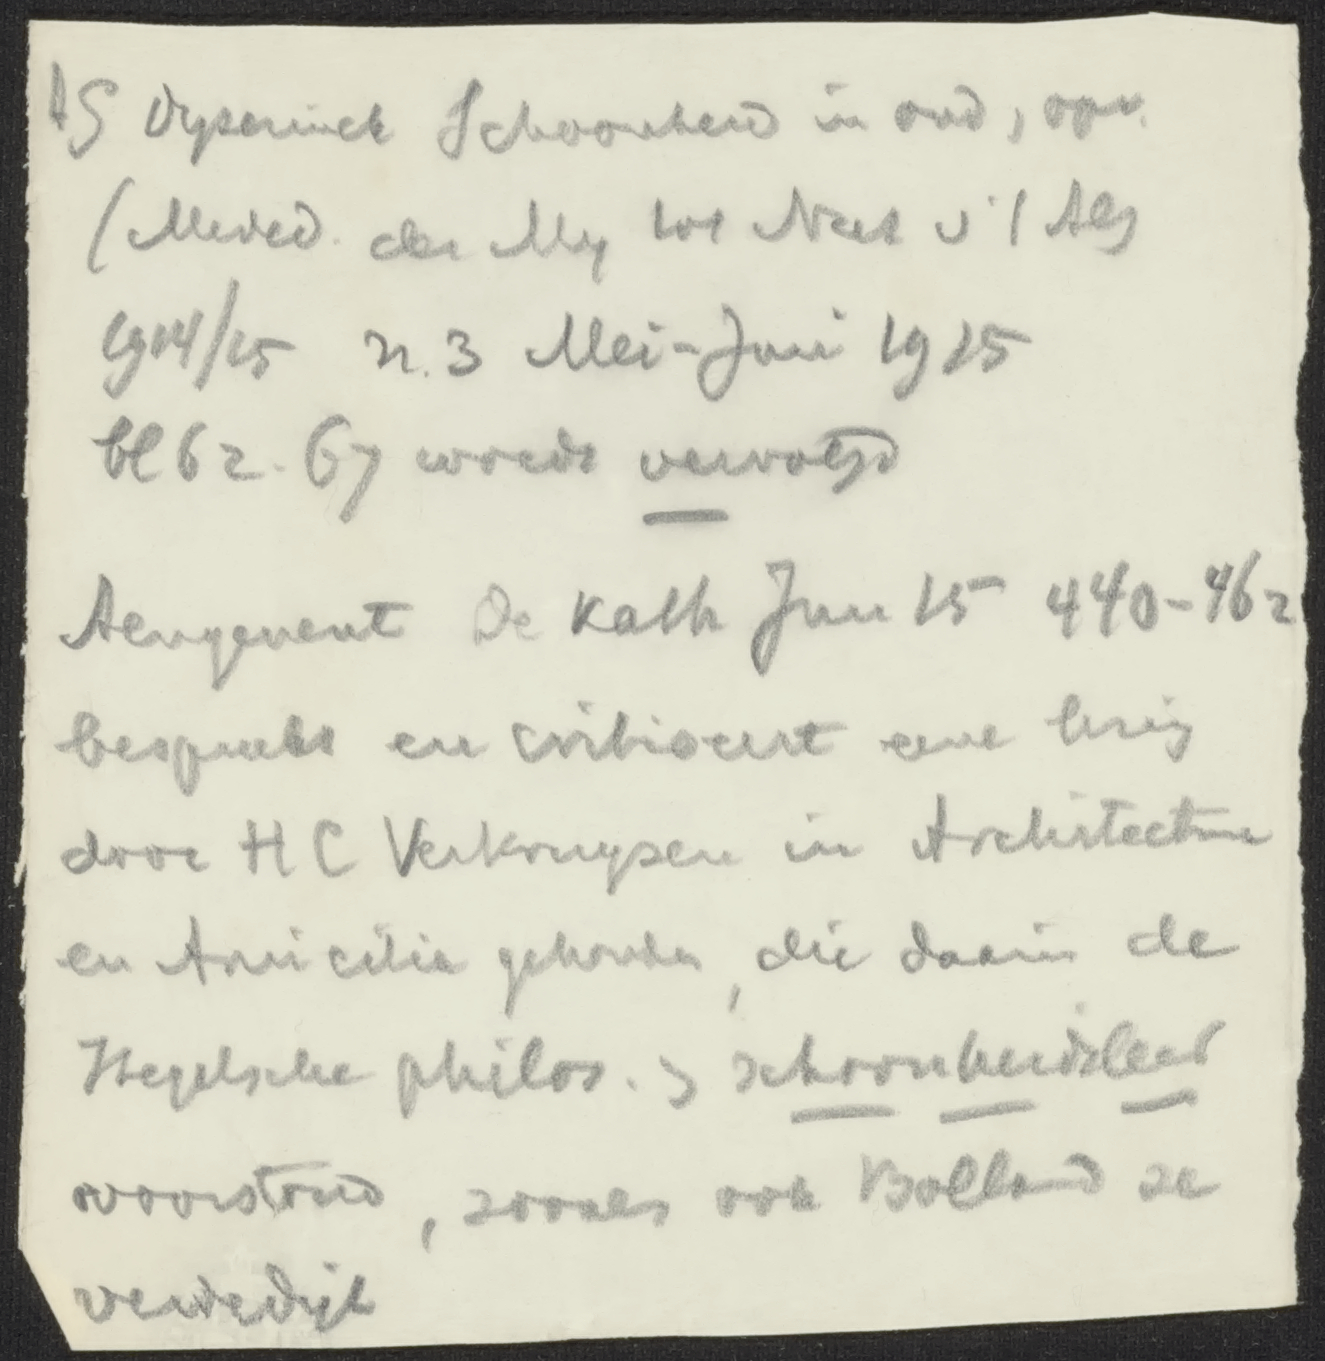 AS Dyserinck Schoonheid in ond, opv.
(Meded. der My tot Nut v/'t Alg
1914/15 n. 3 Mei-Juni 1915
bl 62-67 wordt vervolgd
Aengenent De Kath Juni 15 440-462
bespreekt en critiseert eene lezing
door H C Verkruysen in Architectura
en Amicitia gehouden, die daarin de
Hegelsche philos. schoonheidsleer
voorstond, zooals ook Bolland ze
verdedigt